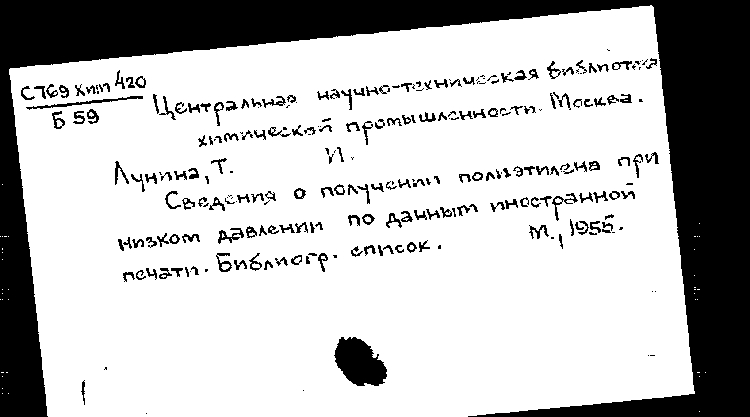 С769 Хим 420
Б 59
Центральная научно-техническая библиотека
химической промышленности. Москва.
Лунина, Т. И.
Сведения о получении полиэтилена при
низком давлении по данным иностранной
печати. Библиогр. список. М., 1955.